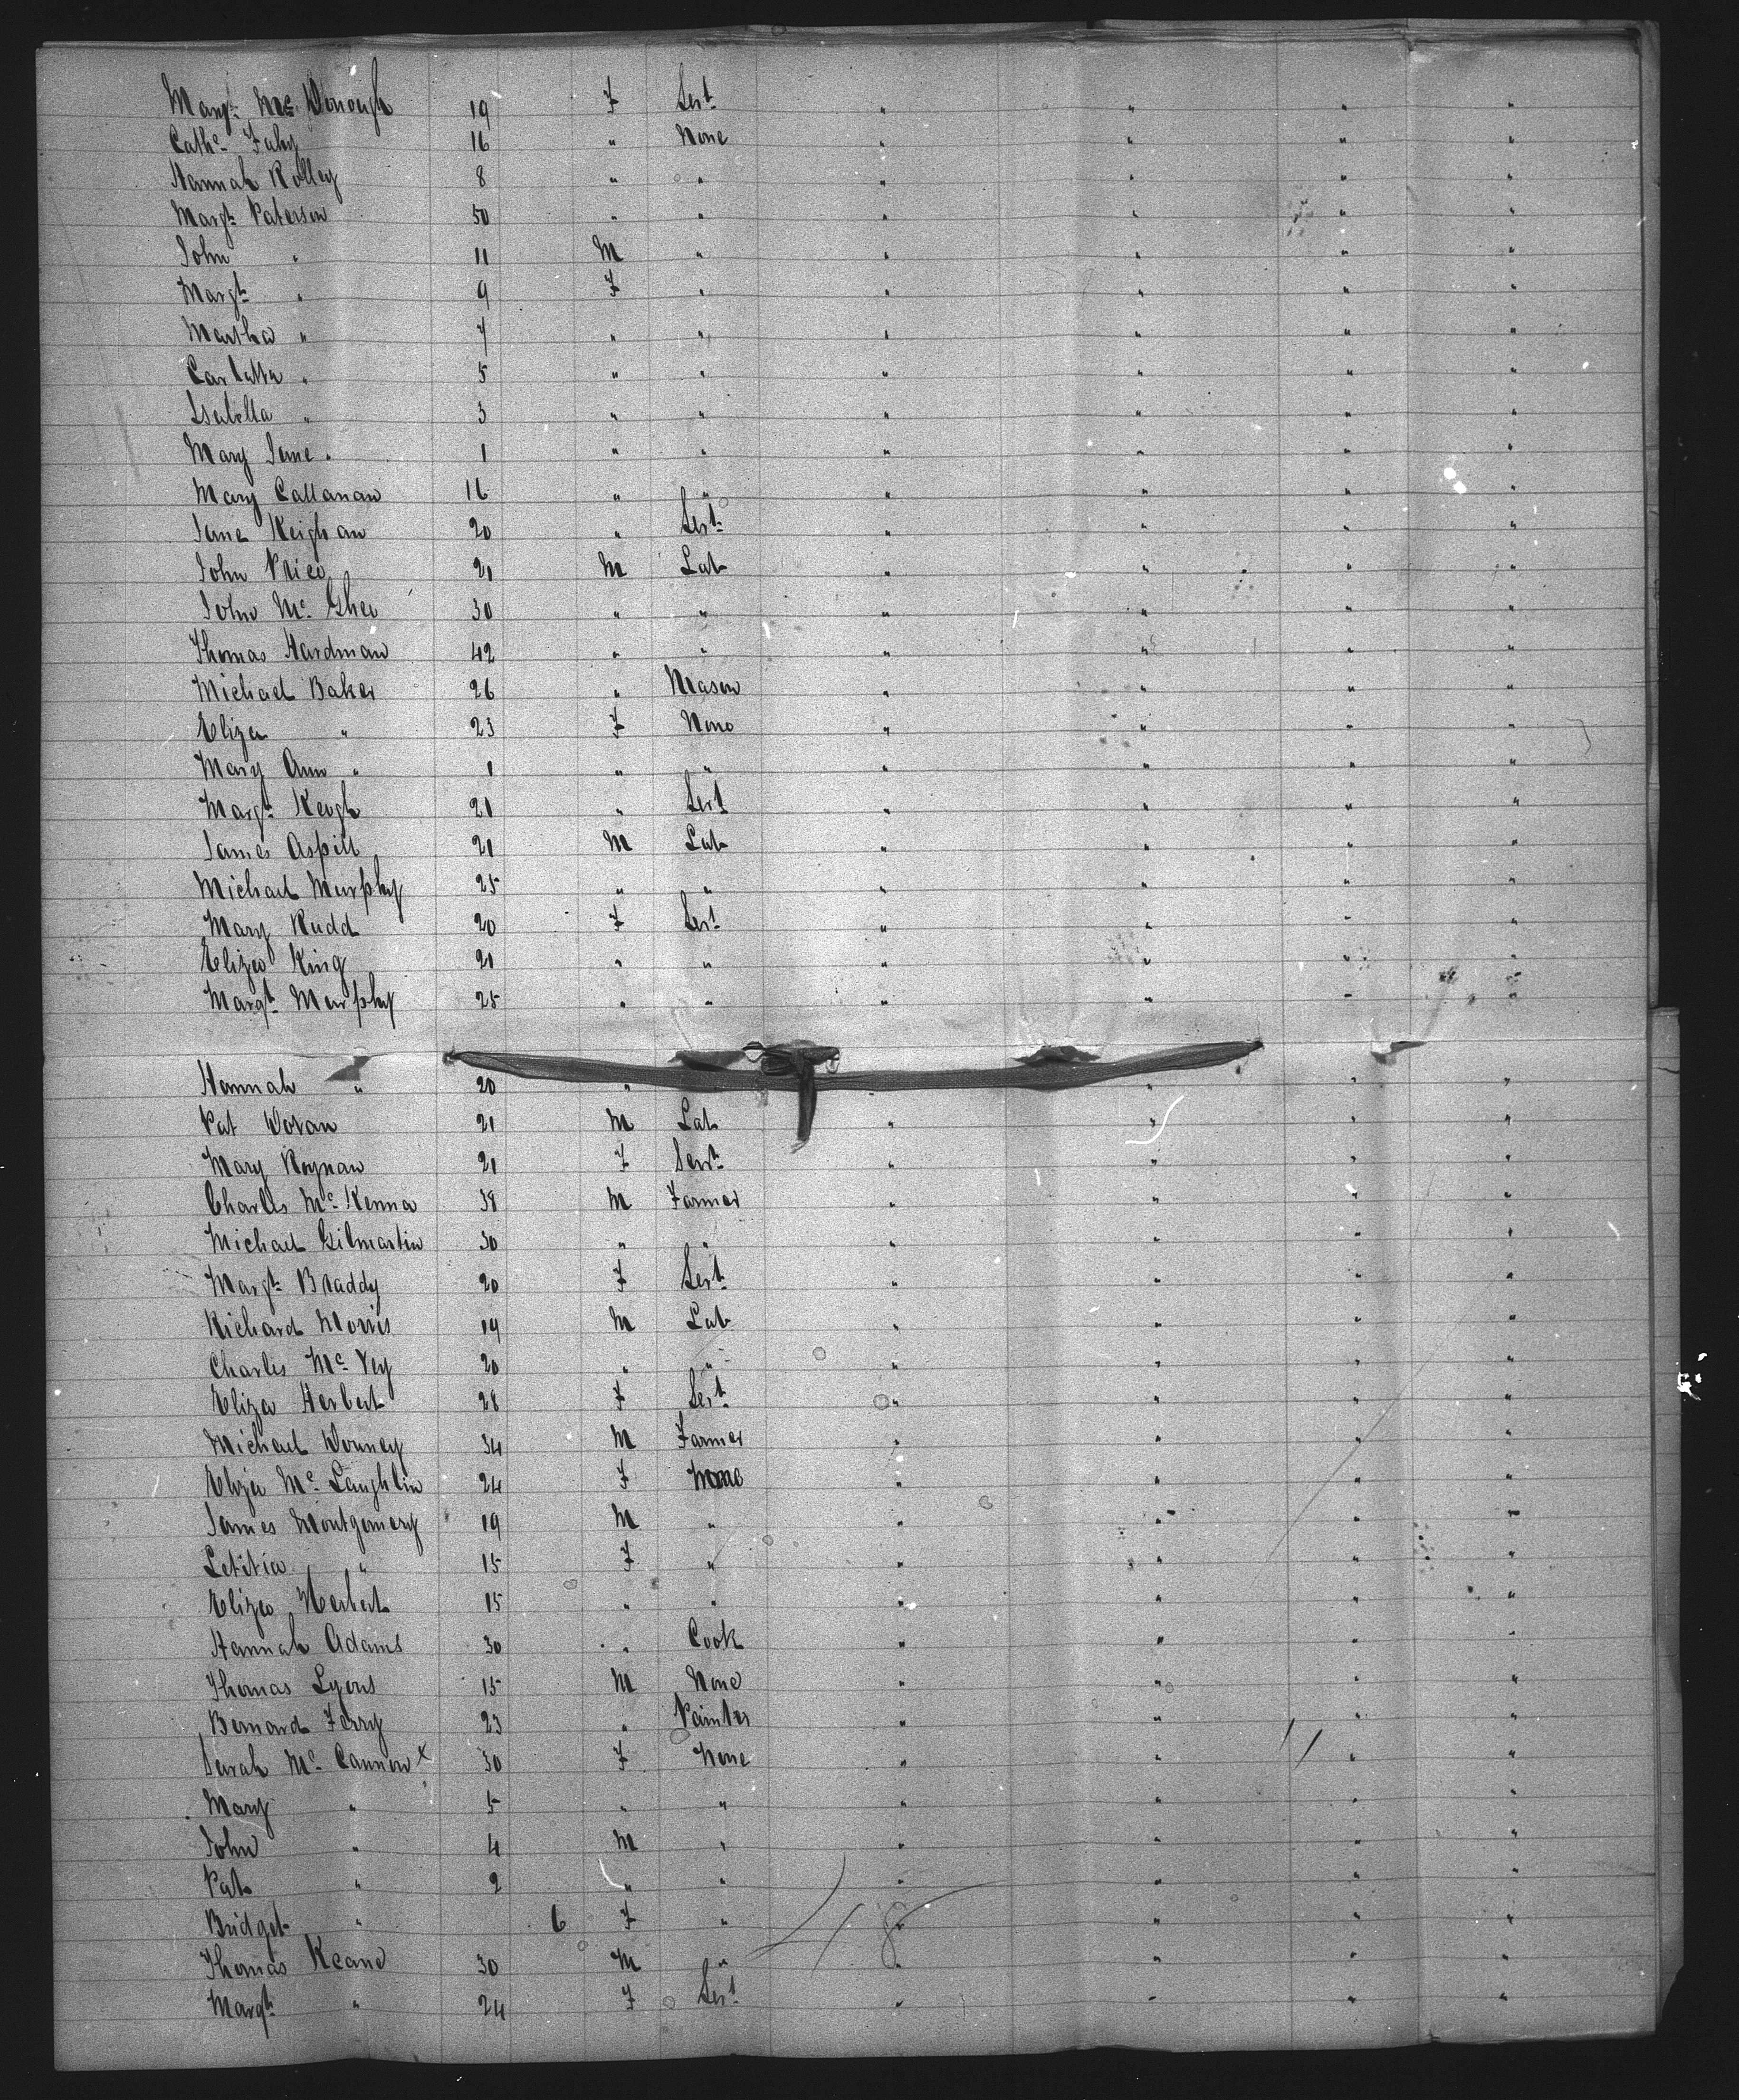 Margt. Mc. Donough 19 F Sert. " " " "
Cathe. Fahy 16 " None " " " "
Hannah Kolley 8 " " " " " "
Margt. Paterson 50 " " " " " "
John " 11 M " " " " "
Margt. " 9 F " " " " "
Martha " 7 " " " " " "
Carlotta " 5 " " " " " "
Isabella " 3 " " " " " "
Mary Jane " 1 " " " " " "
Mary Callanan 16 " " " " " "
Jane Keighan 20 " Sert. " " " "
John Price 21 M Lab " " " "
John Mc. Ghee 30 " " " " " "
Thomas Hardman 42 " " " " " "
Michael Baker 26 " Mason " " " "
Eliza " 23 F None " " " "
Mary Ann " 1 " " " " " "
Margt. Keogh 21 " Sert " " " "
James Aspill 21 M Lab " " " "
Michael Murphy 25 " " " " " "
Mary Rudd 20 F Sert " " " "
Eliza King 21 " " " " " "
Margt. Murphy 25 " " " " " "
Hannah " 20 " " " "
Pat Doran 21 M Lab " " " "
Mary Roynan 21 F Servt. " " " "
Charles Mc. Kenna 38 M Farmer " " " "
Michael Gilmartin 30 " " " " " "
Margt. Braddy 20 F Sert. " " " "
Richard Morris 19 M Lab " " " "
Charles Mc. Vey 20 " " " " " "
Eliza Herbert 28 F Sert. " " " "
Michael Downey 34 M Farmer " " " "
Eliza Mc. Laughlin 24 F None " " " "
James Montgomery 19 M " " " " "
Letitia " 15 F " " " " "
Eliza Herbert 15 " " " " " "
Hannah Adams 30 " Cook " " " "
Thomas Lyons 15 M None " " " "
Bernard Ferry 23 " Painter " " " "
Sarah Mc. Cannon x 30 F None " " " "
Mary " 5 " " " " " "
John " 4 M " " " " "
Pat " 2 " " " " " "
Bridget " 6 F " " " " "
48
Thomas Keane 30 M " " " " "
Margt. " 24 F Sert. " " " "